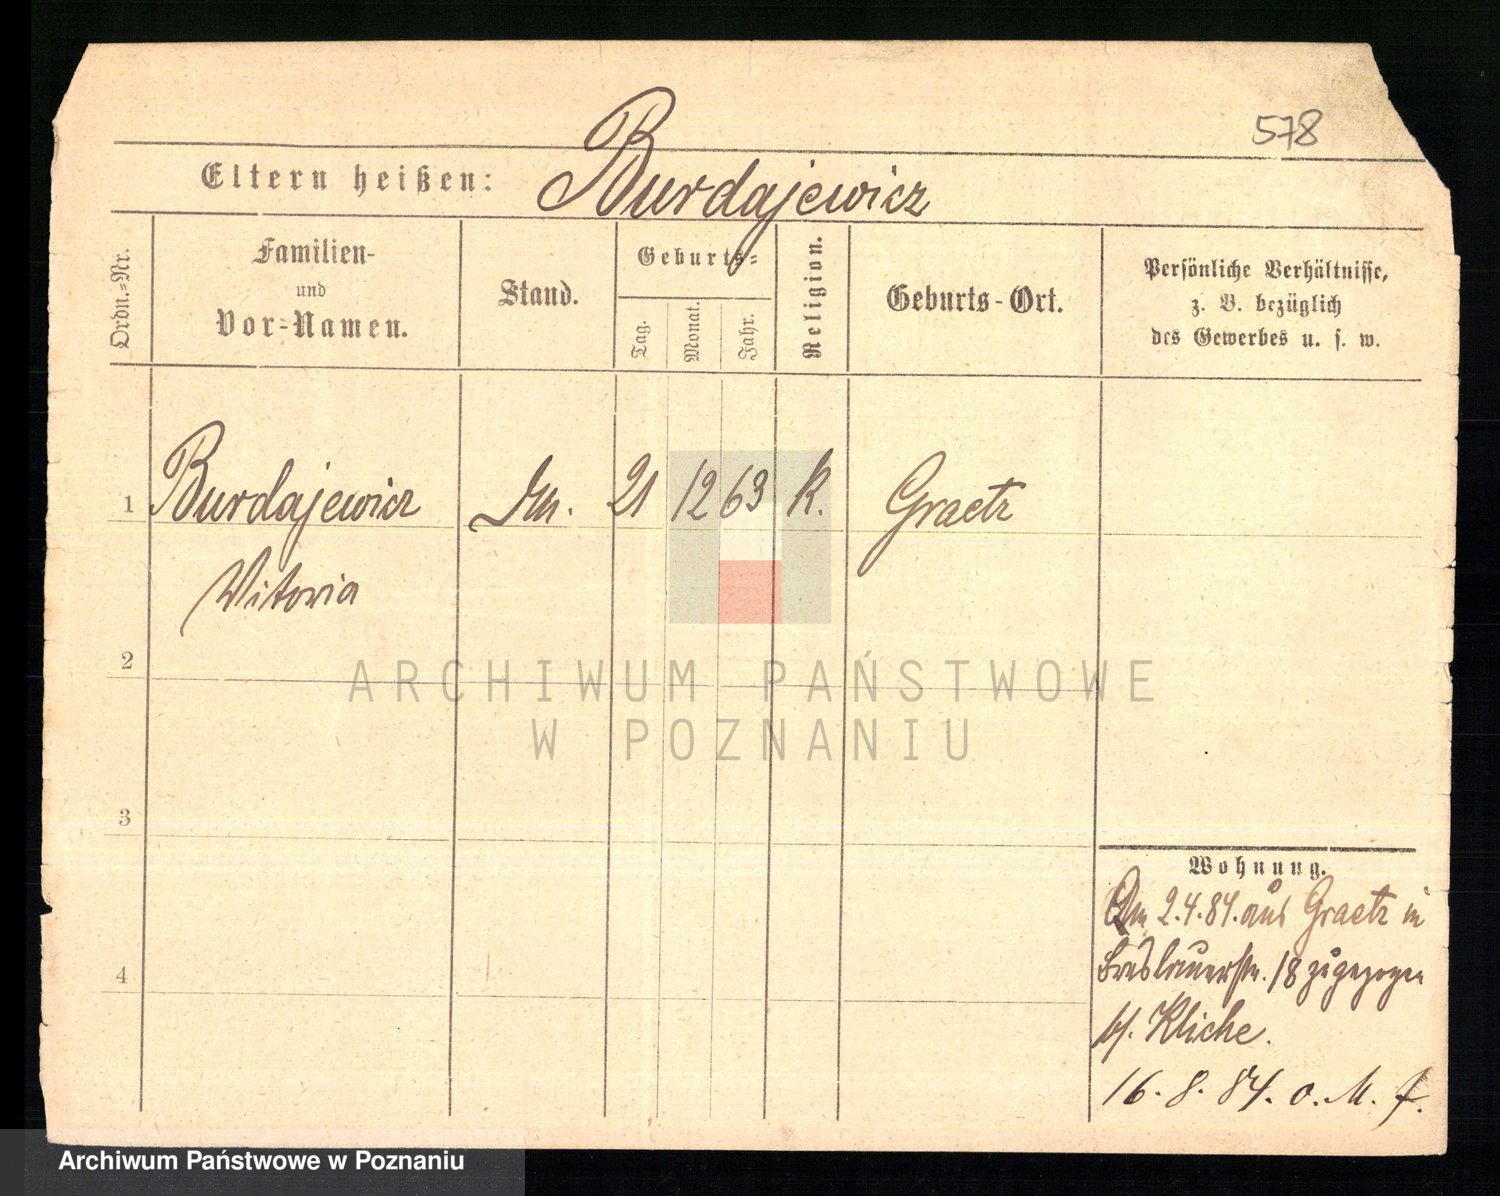 578
Eltern heißen: Burdajewicz
Ordn.-Nr.
Familien-
und
Vor-Namen.
Stand.
Geburts-
Tag.
Monat.
Jahr.
Religion.
Geburts-Ort.
Persönliche Verhältnisse,
z. B. bezüglich
des Gewerbes u. s. w.
1 Burdajewicz 21 12 63 k. Graetz
Vitoria
2
ARCHIWUM PAŃSTWOWE
W POZNANIU
3
Wohnung.
Am 2.4.84. aus Graetz in
Breslauerstr. 18 zugezogen
4
bf. Kliche.
16. 8. 84. o. M. f.
Archiwum Państwowe w Poznaniu